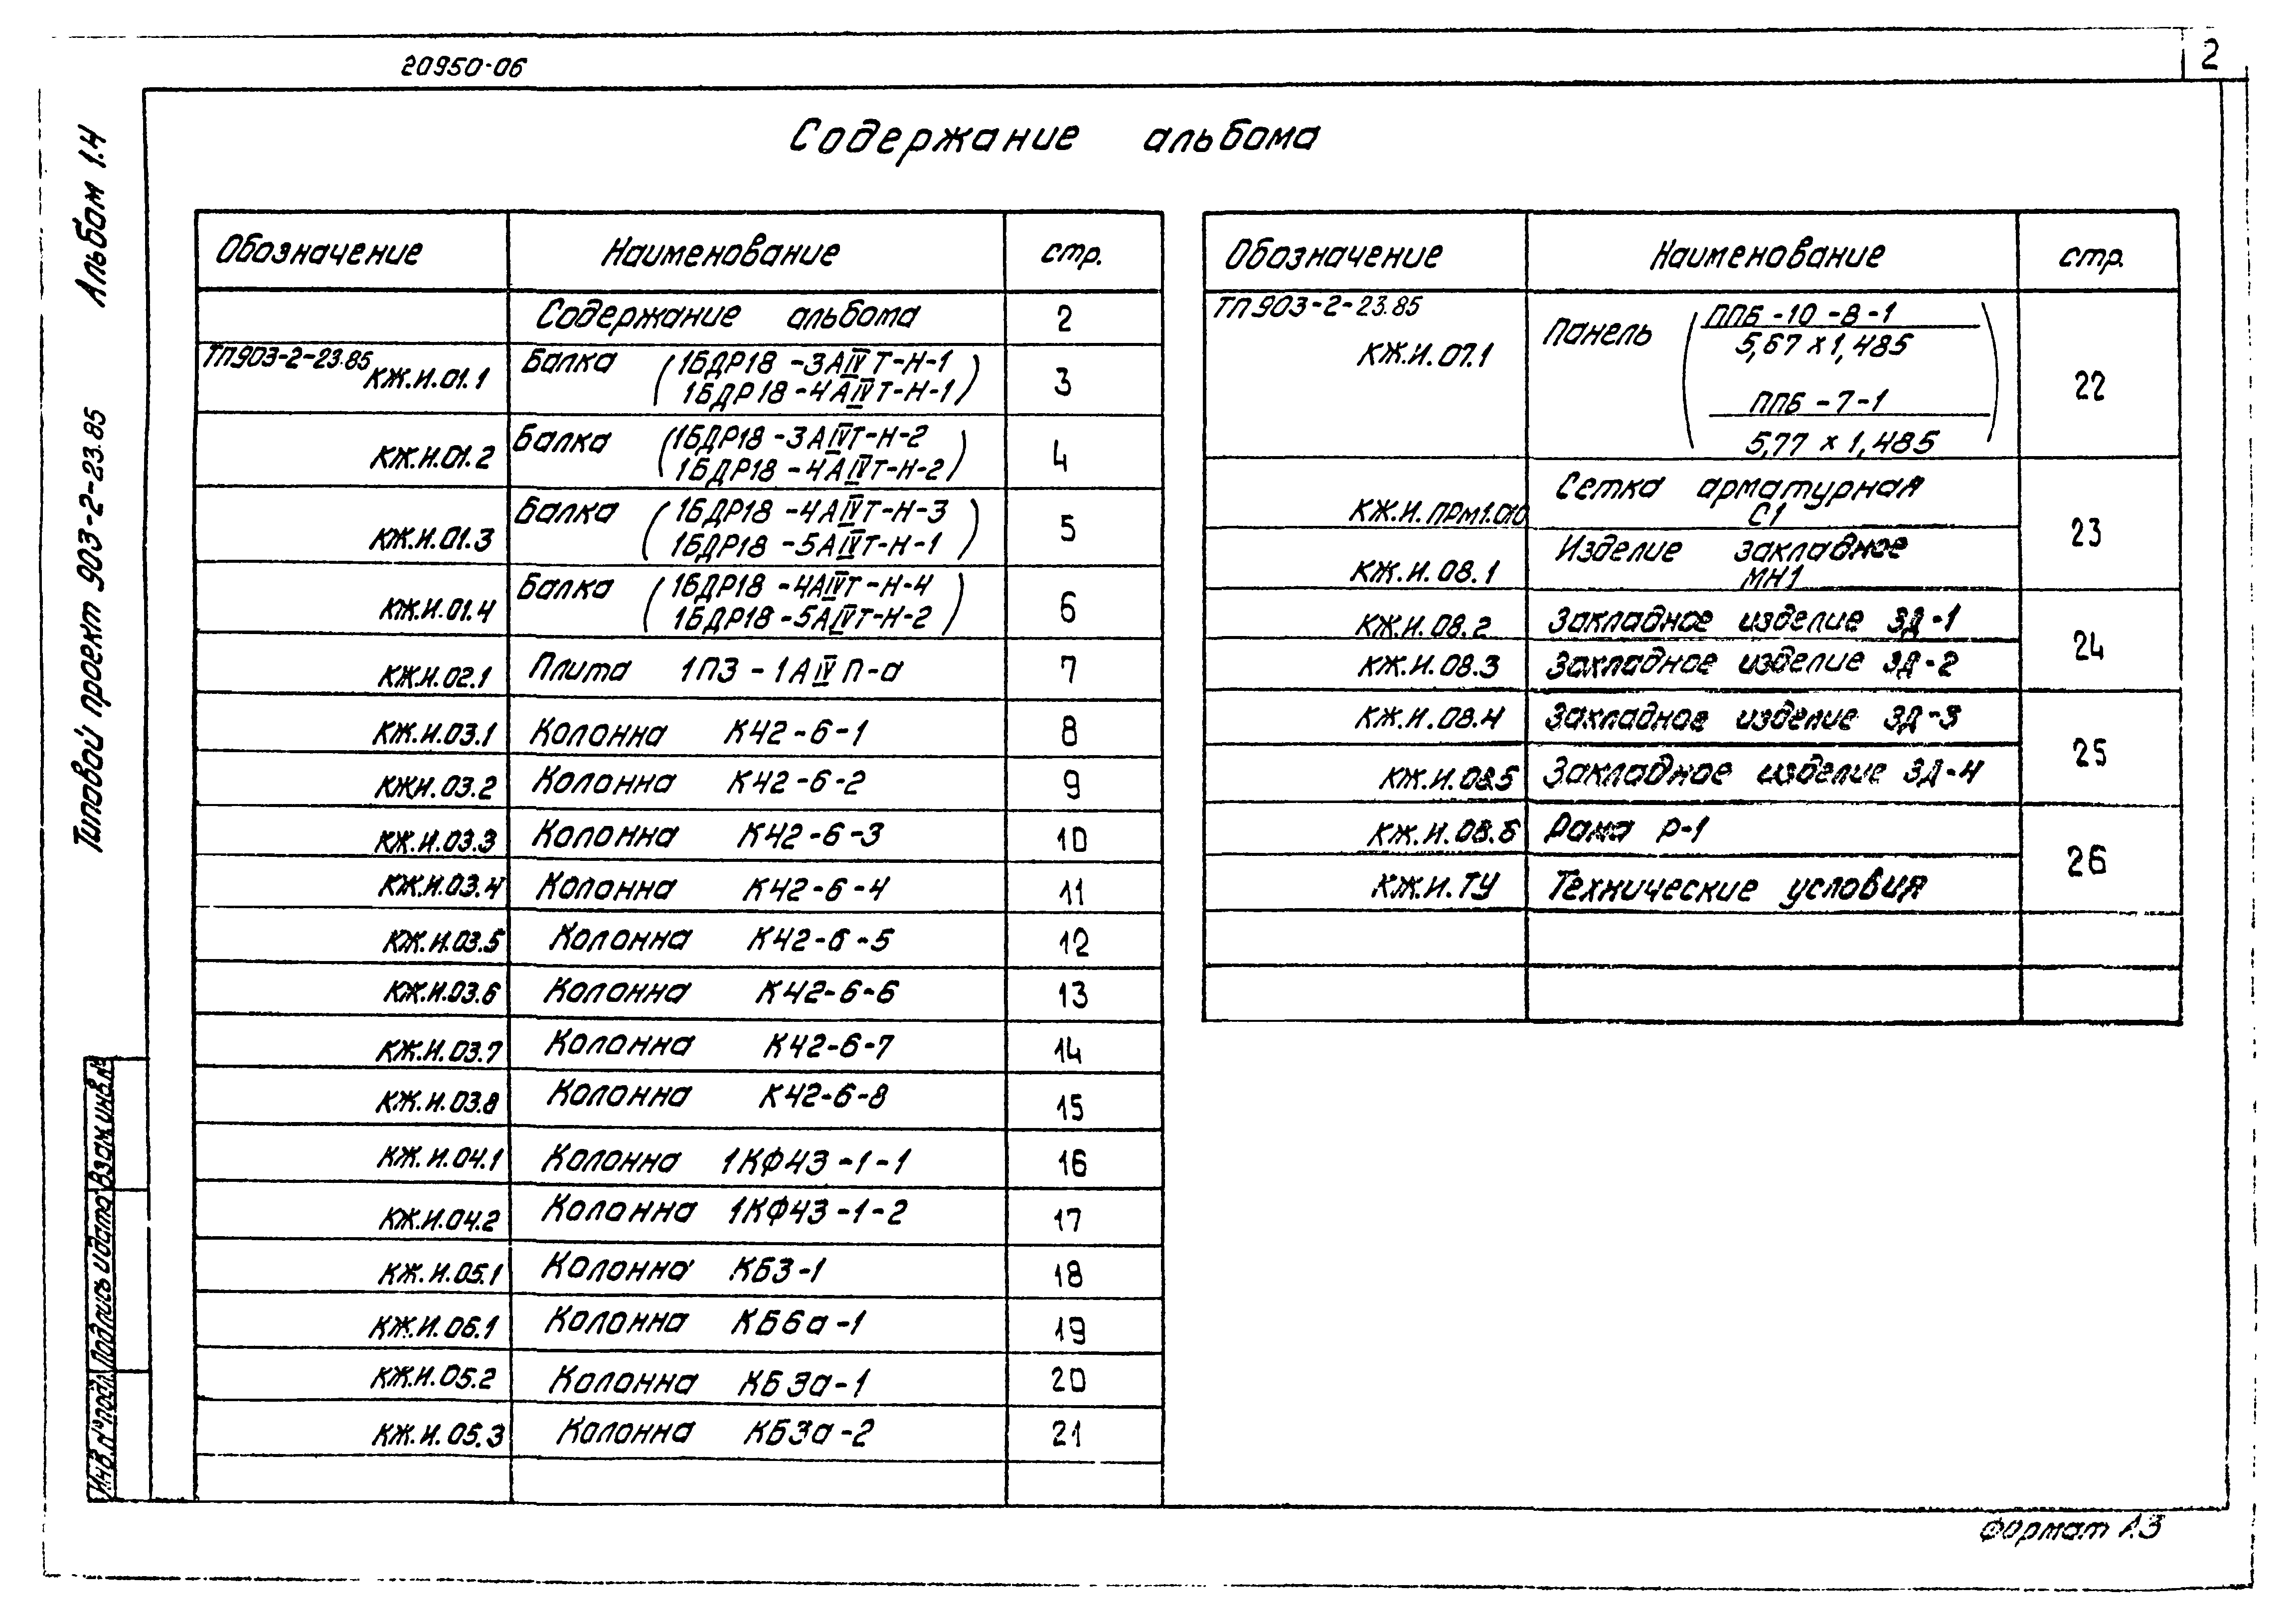 20950-06
2
Альбом 1.4
Типовой проект 903-2-23.85
Содержание альбома
Обозначение Наименование стр.
Содержание альбома 2
ТП903-2-23.85 КЖ.И.01.1 Балка (1БДР18-3АIVТ-Н-1
1БДР18-4АIVТ-Н-1) 3
КЖ.И.01.2 Балка (1БДР18-3АIVТ-Н-2
1БДР18-4АIVТ-Н-2) 4
КЖ.И.01.3 Балка (1БДР18-4АIVТ-Н-3
1БДР18-5АIVТ-Н-1) 5
КЖ.И.01.4 Балка (1БДР18-4АIVТ-Н-4
1БДР18-5АIVТ-Н-2) 6
КЖ.И.02.1 Плита 1П3-1АIVП-а 7
КЖ.И.03.1 Колонна К42-6-1 8
КЖИ.03.2 Колонна К42-6-2 9
КЖ.И.03.3 Колонна К42-6-3 10
КЖ.И.03.4 Колонна К42-6-4 11
КЖ.И.03.5 Колонна К42-6-5 12
КЖ.И.03.6 Колонна К42-6-6 13
КЖ.И.03.7 Колонна К42-6-7 14
КЖ.И.03.8 Колонна К42-6-8 15
КЖ.И.04.1 Колонна 1КФ43-1-1 16
КЖ.И.04.2 Колонна 1КФ43-1-2 17
КЖ.И.05.1 Колонна КБ3-1 18
КЖ.И.06.1 Колонна КБ6а-1 19
КЖ.И.05.2 Колонна КБ3а-1 20
КЖ.И.05.3 Колонна КБ3а-2 21
Обозначение Наименование стр.
ТП903-2-23.85
КЖ.И.07.1 Панель (ППБ-10-8-1
5,67х1,485
ППБ-7-1
5,77х1,485) 22
КЖ.И.ПРм1.010 Сетка арматурная
С1
23
КЖ.И.08.1 Изделие закладное
МН1
КЖ.И.08.2 Закладное изделие ЗД-1
24
КЖ.И.08.3 Закладное изделие ЗД-2
КЖ.И.08.4 Закладное изделие ЗД-3
25
КЖ.И.08.5 Закладное изделие ЗД-4
КЖ.И.08.6 Рама Р-1
26
КЖ.И.ТУ Технические условия
Инв.№подл. Подпись и дата Взам.инв.№
Формат А3